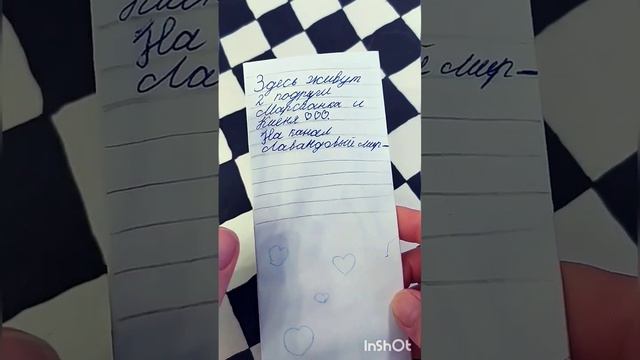 Здесь живут
2 подруги
и
♡♡♡.
На канал
Лавандовый мир-
InShOt